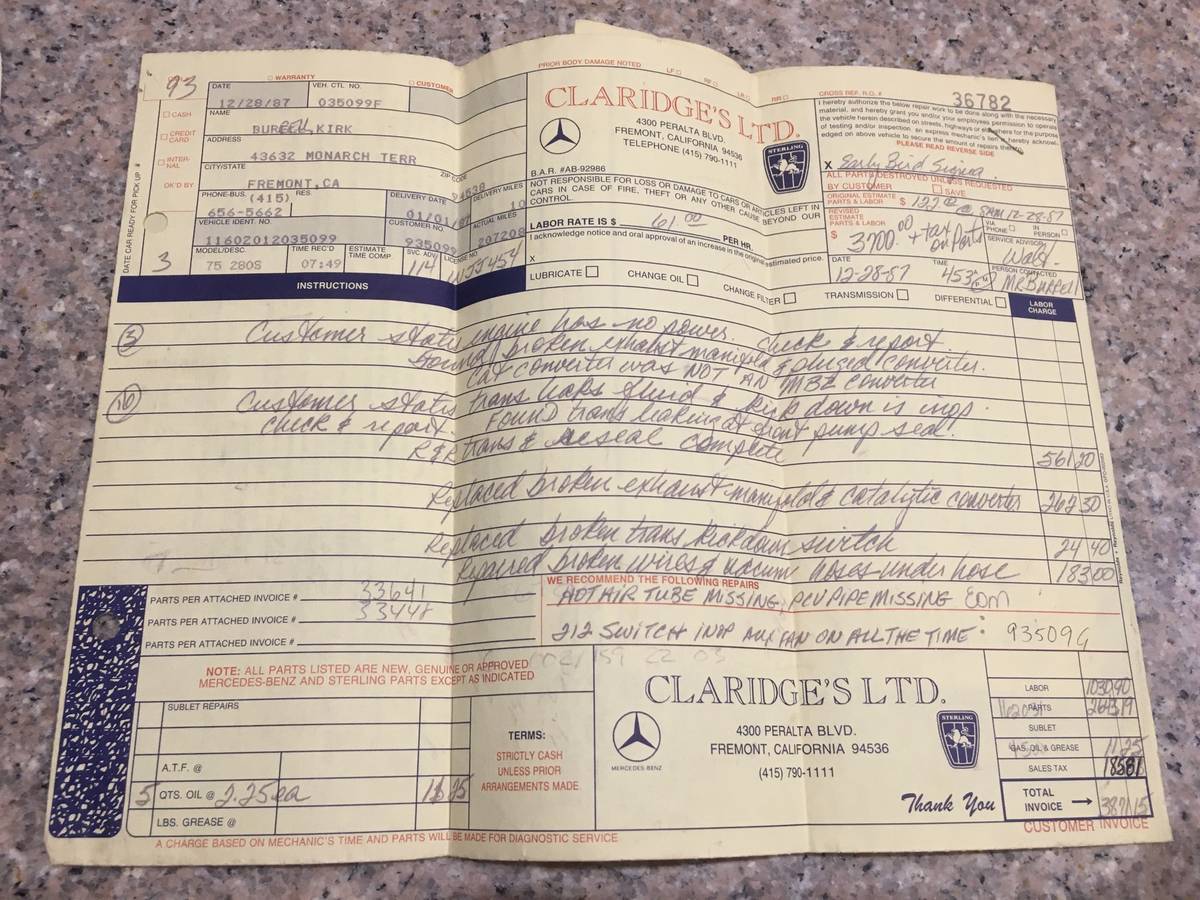 93
WARRANTY
CUSTOMER
PRIOR BODY DAMAGE NOTED LF RF LR RR
CROSS REF. R.O. # 36782
DATE 12/28/87 VEH. CTL. NO. 035099F
CASH
CREDIT CARD
INTERNAL
OK'D BY
DATE CAR READY FOR PICK UP
NAME
KIRK
ADDRESS
43632 MONARCH TERR
CITY/STATE ZIP CODE
FREMONT, CA 94538
PHONE-BUS. RES. (415)
656-5662
DELIVERY DATE 01/01/
DELIVERY MILES 10
VEHICLE IDENT. NO.
11602012035099
CUSTOMER NO.
935099
ACTUAL MILES
207208
3
MODEL/DESC. 75 280S
TIME REC'D 07:49
ESTIMATE TIME COMP
SVC. ADV. 114
LICENSE NO.
CLARIDGE'S LTD.
4300 PERALTA BLVD.
FREMONT, CALIFORNIA 94536
TELEPHONE (415) 790-1111
STERLING
B.A.R. #AB-92986
NOT RESPONSIBLE FOR LOSS OR DAMAGE TO CARS OR ARTICLES LEFT IN
CARS IN CASE OF FIRE, THEFT OR ANY OTHER CAUSE BEYOND OUR
CONTROL.
LABOR RATE IS $ 61.00 PER HR.
I acknowledge notice and oral approval of an increase in the original estimated price.
X
I hereby authorize the below repair work to be done along with the necessary
material, and hereby grant you and/or your employees permission to operate
the vehicle herein described on streets, highways or elsewhere for the purpose
of testing and/or inspection. an express mechanic's lien is hereby acknowl-
edged on above vehicle to secure the amount of repairs thereto.
PLEASE READ REVERSE SIDE
X Early Bird
ALL PARTS DESTROYED UNLESS REQUESTED
BY CUSTOMER SAVE
ORIGINAL ESTIMATE PARTS & LABOR $ 122.00 @ 8AM 12-28-87
REVISED ESTIMATE PARTS & LABOR $ 3700.00 + tax on parts
VIA PHONE IN PERSON
SERVICE ADVISOR
DATE 12-28-87 TIME 453 PM PERSON CONTACTED MR. BURRELL
INSTRUCTIONS
LUBRICATE CHANGE OIL CHANGE FILTER TRANSMISSION DIFFERENTIAL
LABOR CHARGE
Customer states engine has no power. check & report.
found broken exhaust manifold & pluged converter.
Cat converter was NOT AN MBZ converter
Customer states trans leaks fluid & kick down is inop.
check & report. Found trans leaking at front pump seal.
R&R trans & reseal complete 561 20
Replaced broken exhaust manifold & catalytic converter 262 30
Replaced broken trans kickdown switch 24 40
Repaired broken wires & vacuum hoses under hose 183 00
PARTS PER ATTACHED INVOICE # 33641
PARTS PER ATTACHED INVOICE # 33448
PARTS PER ATTACHED INVOICE #
WE RECOMMEND THE FOLLOWING REPAIRS
HOT AIR TUBE MISSING, PCV PIPE MISSING
212 SWITCH INOP AUX FAN ON ALL THE TIME
NOTE: ALL PARTS LISTED ARE NEW, GENUINE OR APPROVED
MERCEDES-BENZ AND STERLING PARTS EXCEPT AS INDICATED
SUBLET REPAIRS
A.T.F. @
5 QTS. OIL @ 2.25 ea 11 25
LBS. GREASE @
TERMS:
STRICTLY CASH
UNLESS PRIOR
ARRANGEMENTS MADE
CLARIDGE'S LTD.
MERCEDES-BENZ
4300 PERALTA BLVD.
FREMONT, CALIFORNIA 94536
(415) 790-1111
STERLING
Thank You
LABOR 1030.90
PARTS 2643.19
SUBLET
GAS, OIL & GREASE 11.25
SALES TAX 185.81
TOTAL INVOICE 3871.15
CUSTOMER INVOICE
A CHARGE BASED ON MECHANIC'S TIME AND PARTS WILL BE MADE FOR DIAGNOSTIC SERVICE